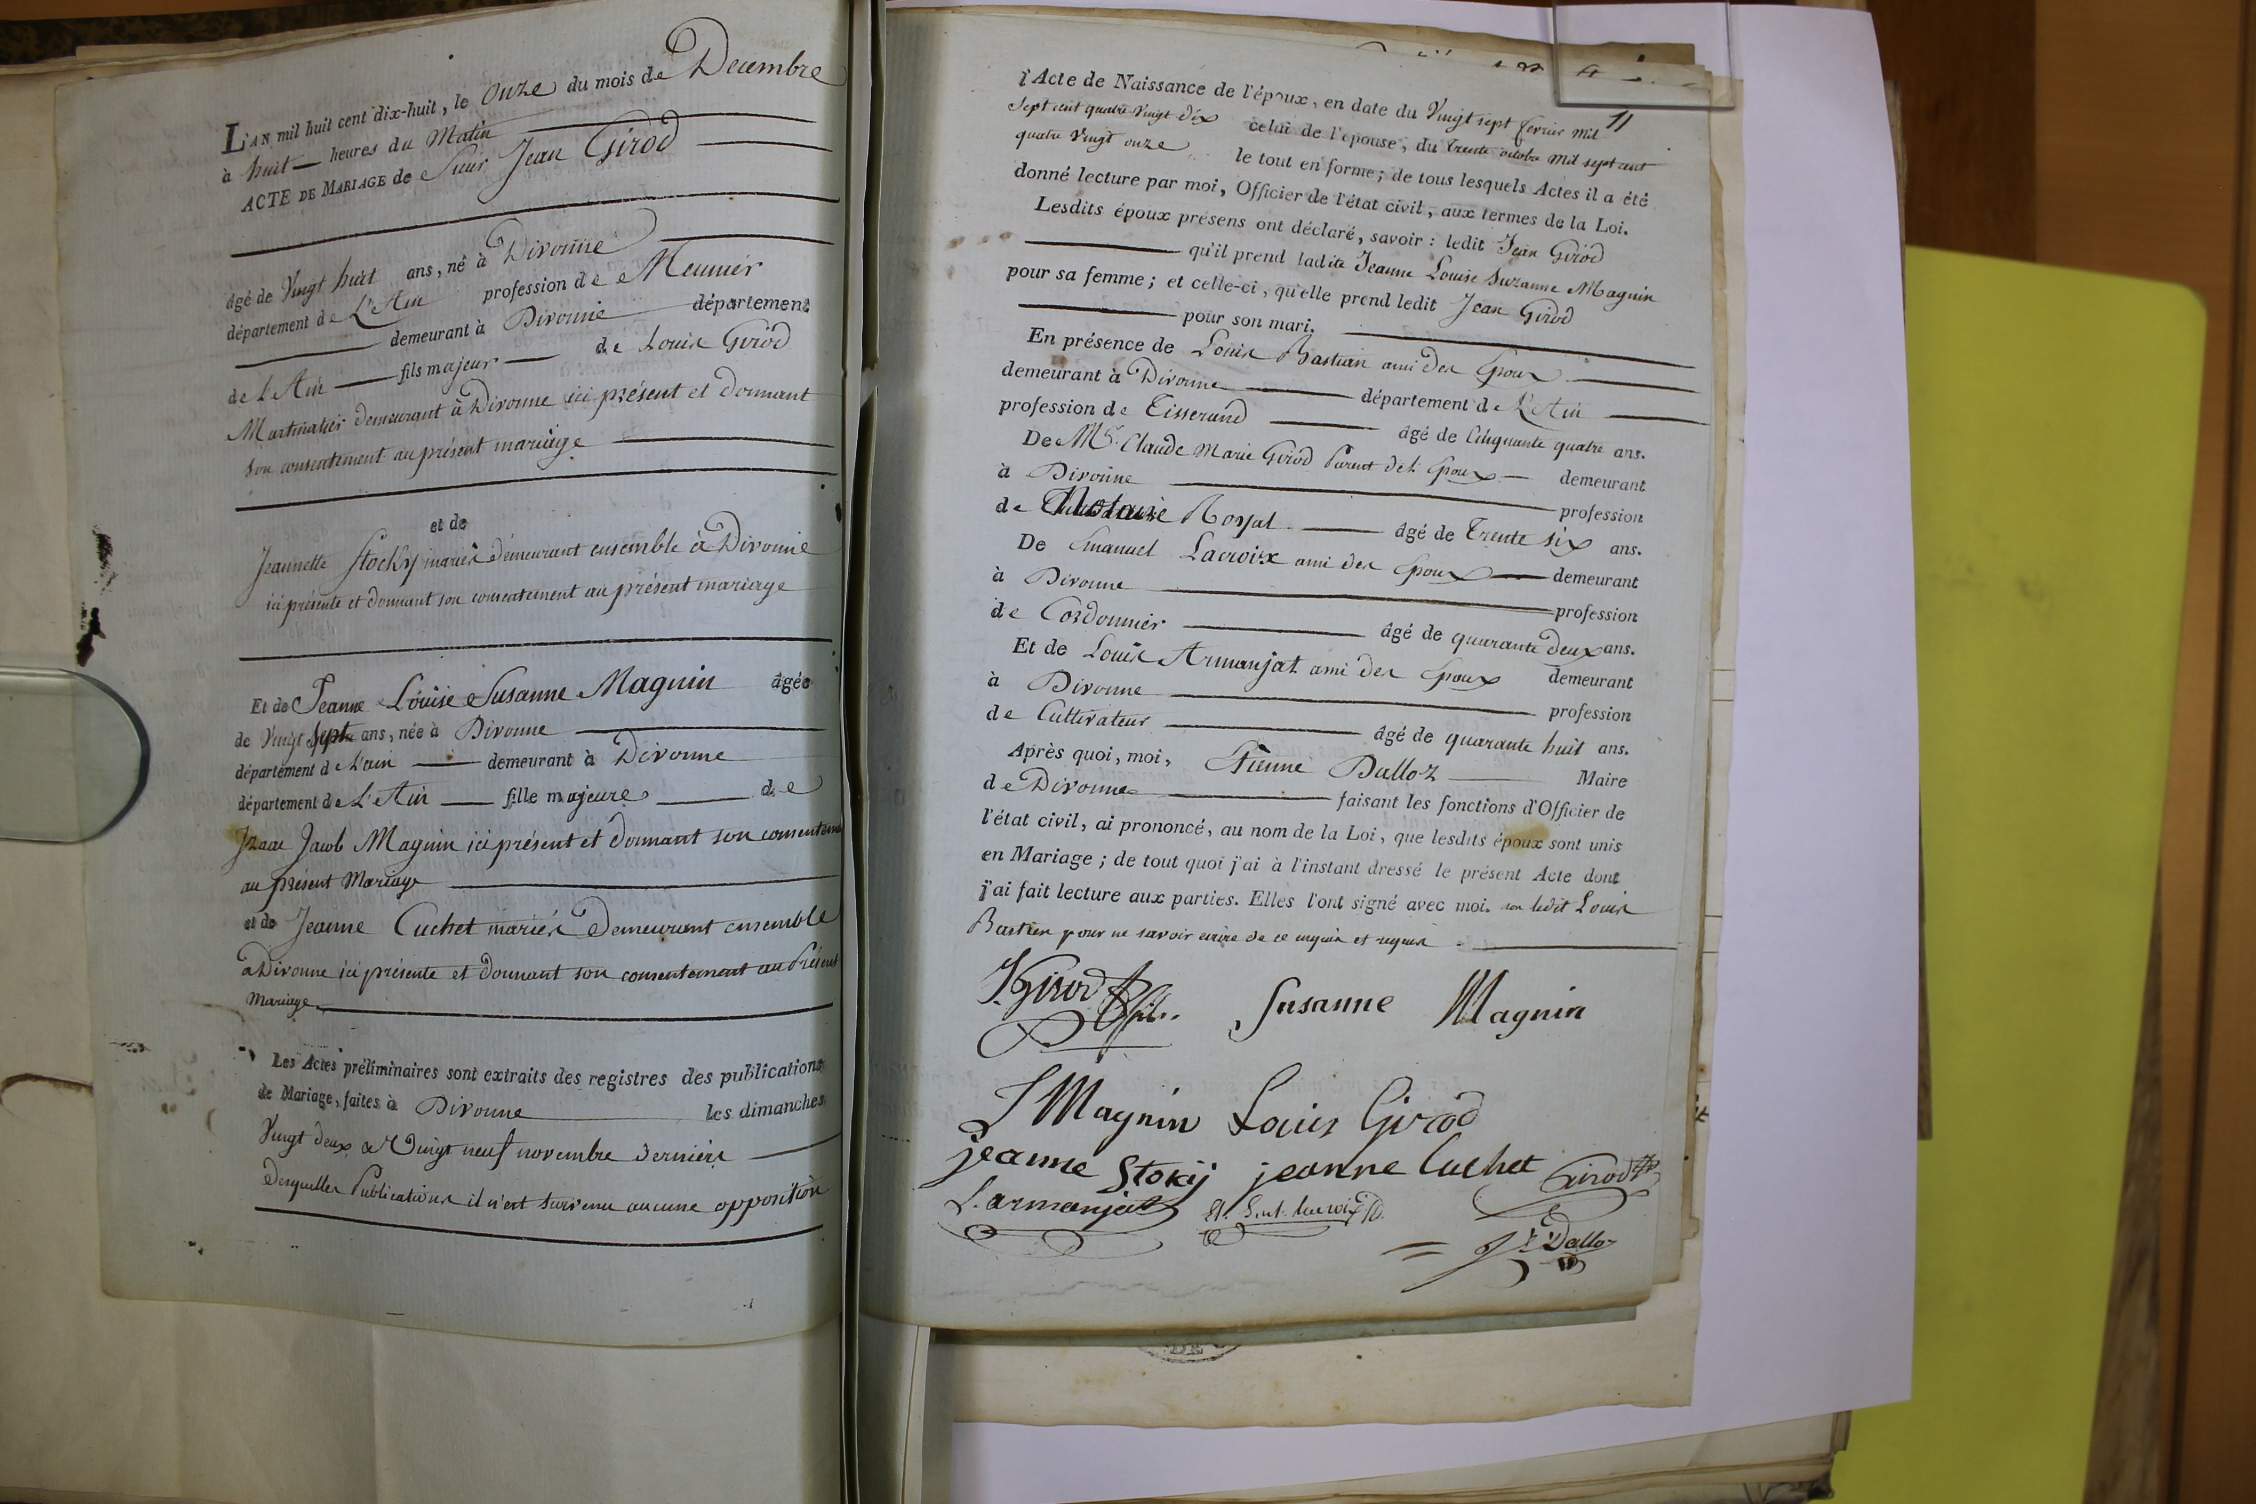 L'AN mil huit cent dix-huit, le Onze du mois de Decembre
à huit heures du Matin
ACTE DE MARIAGE de Sieur Jean Girod
âgé de Vingt huit ans, né à Divonne
département de L'Ain profession de Meunier
demeurant à Divonne département
de L'Ain fils majeur de Louis Girod
demeurant à Divonne ici présent et donnant
son consentement au présent mariage
et de
Jeannette Stocky mariés demeurant ensemble à Divonne
ici présente et donnant son consentement au présent mariage
Et de Jeanne Louise Susanne Magnin âgée
de Vingt Sept ans, née à Divonne
département de L'ain demeurant à Divonne
département de L'Ain fille majeure de
Izaac Jacob Magnin ici présent et donnant son consentem
au présent Mariage
et de Jeanne Cuchet mariés Demeurant ensemble
à Divonne ici présente et donnant son consentement au Présent
Mariage
Les Actes préliminaires sont extraits des registres des publications
de Mariage, faites à Divonne les dimanches
Vingt deux & Vingt neuf novembre derniers
desquelles Publications il n'est survenu aucune opposition
11
l'Acte de Naissance de l'époux, en date du Vingt sept fevrier mil
Sept cent quatre Vingt dix celui de l'épouse, du trente octobre mil sept cent
quatre Vingt onze le tout en forme; de tous lesquels Actes il a été
donné lecture par moi, Officier de l'état civil, aux termes de la Loi.
Lesdits époux présens ont déclaré, savoir : ledit Jean Girod
qu'il prend ladite Jeanne Louise Suzanne Magnin
pour sa femme; et celle-ci, qu'elle prend ledit Jean Girod
pour son mari.
En présence de Louis Bastian ami des Epoux
demeurant à Divonne département de L'Ain
profession de Tisserand âgé de Cinquante quatre ans.
De Mr. Claude Marie Girod Parent de l'Epoux demeurant
à Divonne profession
de Notaire Royal âgé de Trente six ans.
De Emanuel Lacroix ami des Epoux demeurant
à Divonne profession
de Cordonnier âgé de quarante deux ans.
Et de Louis Armanjat ami des Epoux demeurant
à Divonne profession
de Cultivateur âgé de quarante huit ans.
Après quoi, moi, Etienne Dalloz Maire
de Divonne faisant les fonctions d'Officier de
l'état civil, ai prononcé, au nom de la Loi, que lesdits époux sont unis
en Mariage ; de tout quoi j'ai à l'instant dressé le présent Acte dont
j'ai fait lecture aux parties. Elles l'ont signé avec moi. non ledit Louis
Bastien pour ne savoir ecrire de ce enquis et requis
J. Girod fils. Susanne Magnin
J Magnin Louis Girod
jeanne Stokij jeanne Cuchet Girod
L. armanjat
Dalloz
DE